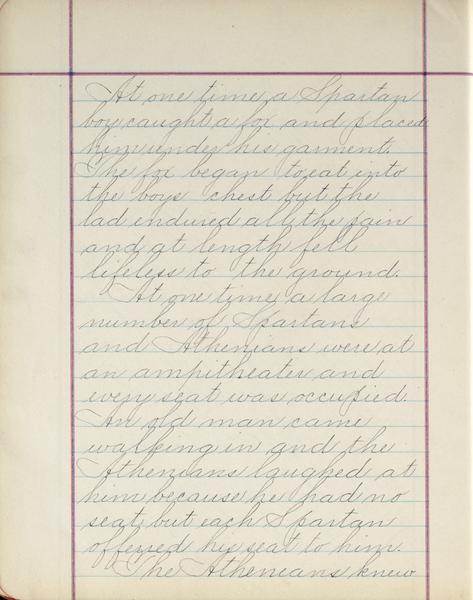 At one time a Spartan
boy caught a fox and placed
him under his garment.
The fox began to eat into
the boys chest but the
lad endured all the pain
and at length fell
lifeless to the ground.
At one time a large
number of Spartans
and Athenians were at
an ampitheater and
every seat was occupied.
An old man came
walking in and the
Athenians laughed at
him because he had no
seat, but each Spartan
offered his seat to him.
The Atheneans knew